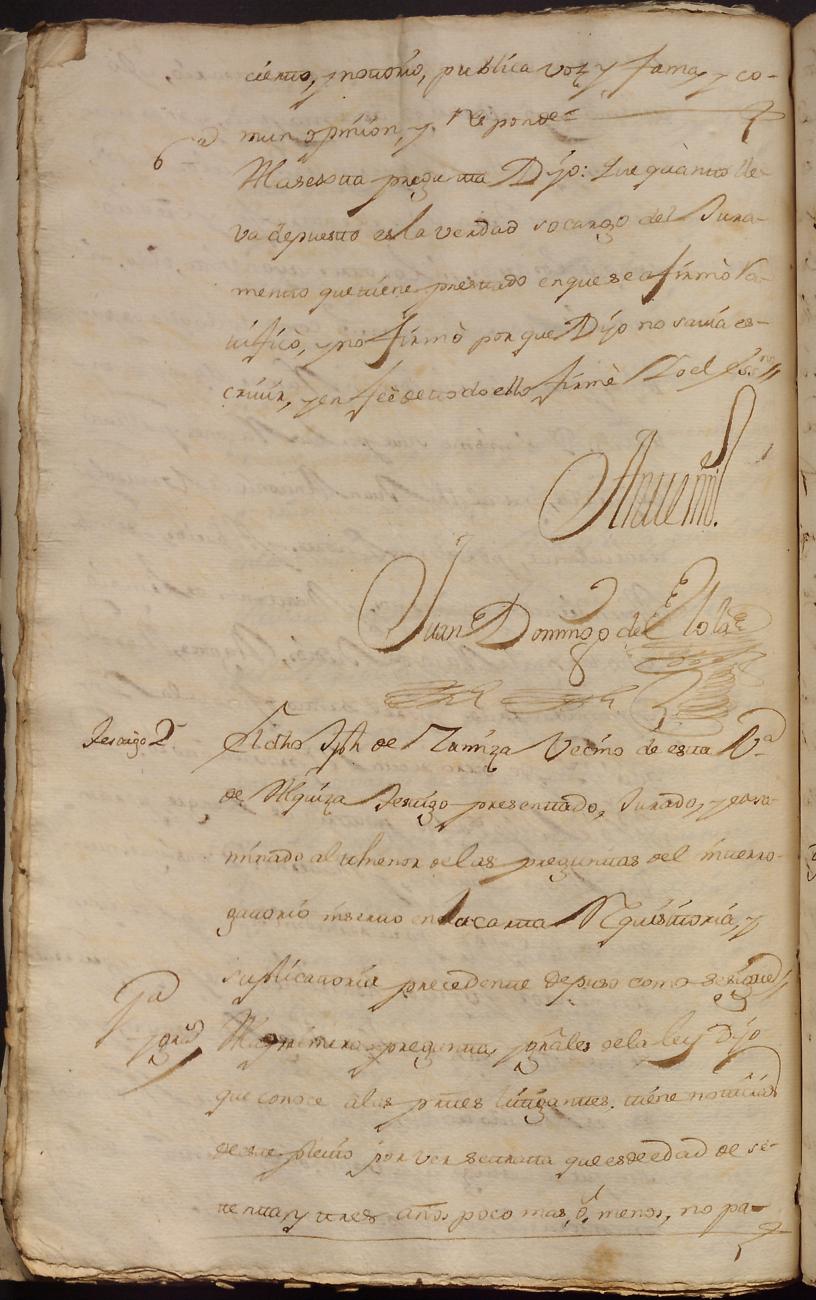 cierto, y notorio, publica voz y fama, y co-
mun opinion, y Responde=
6ª
A la sesta pregunta Dijo: Que quanto lle-
va depuesto es la verdad so cargo del Jura-
mento que tiene prestado en que se afirmò ra-
tificò, y no firmò porque Dijo no savia es-
criuir, y en feè de todo ello firmè Yo el Esno
Antemi
Juan Domingo de
Testigo 2º
El dho Jph de vecino de esta Vª
de testigo presentado, Jurado, y exa-
minado al thenor de las preguntas del interro-
gatorio inserto en la carta Requisitoria, y
suplicatoria precedente depuso como se sigue
1ª
y gras
A la primera pregunta, y grâles de la ley Dijo
que conoce a las partes litigantes, tiene noticia
de este pleito por ver se trata que es de edad de se-
tenta, y tres años poco mas, ò menos, no pa-